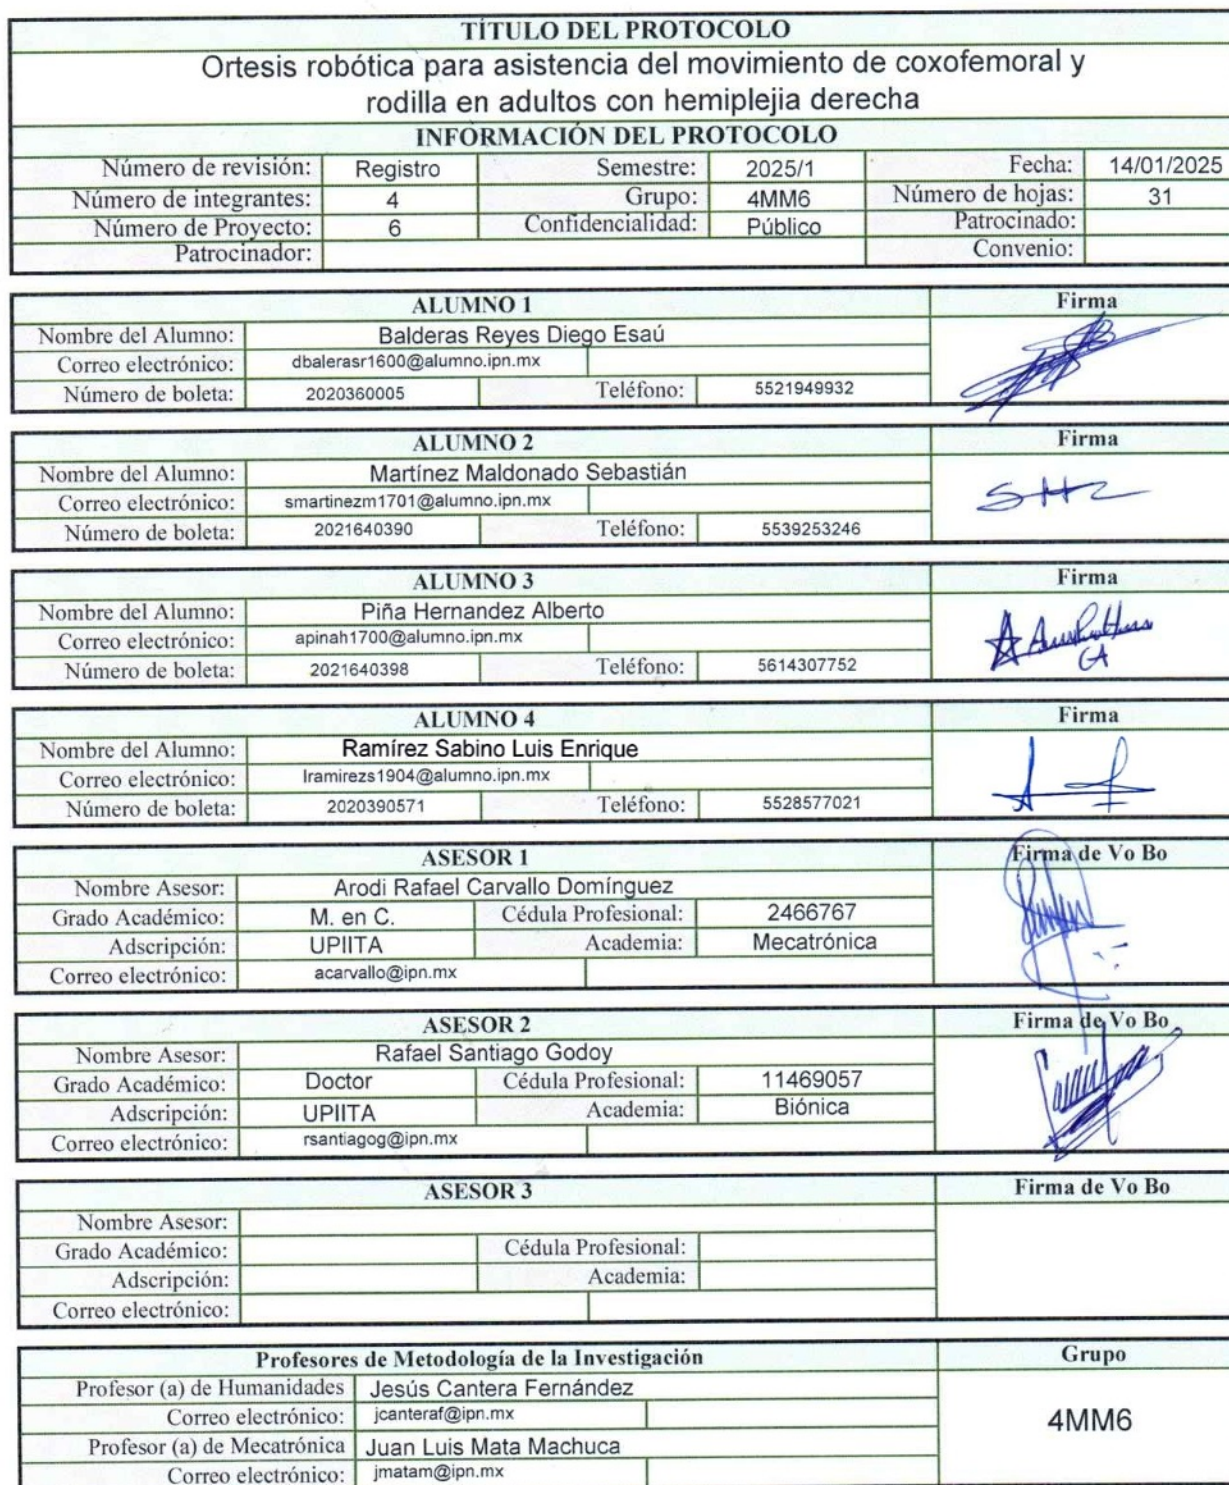 TÍTULO DEL PROTOCOLO
Ortesis robótica para asistencia del movimiento de coxofemoral y
rodilla en adultos con hemiplejia derecha
INFORMACIÓN DEL PROTOCOLO
Número de revisión: Registro Semestre: 2025/1 Fecha: 14/01/2025
Número de integrantes: 4 Grupo: 4MM6 Número de hojas: 31
Número de Proyecto: 6 Confidencialidad: Público Patrocinado:
Patrocinador: Convenio:
ALUMNO 1 Firma
Nombre del Alumno: Balderas Reyes Diego Esaú
Correo electrónico: dbalerasr1600@alumno.ipn.mx
Número de boleta: 2020360005 Teléfono: 5521949932
ALUMNO 2 Firma
Nombre del Alumno: Martínez Maldonado Sebastián
Correo electrónico: smartinezm1701@alumno.ipn.mx
Número de boleta: 2021640390 Teléfono: 5539253246
ALUMNO 3 Firma
Nombre del Alumno: Piña Hernandez Alberto
Correo electrónico: apinah1700@alumno.ipn.mx
Número de boleta: 2021640398 Teléfono: 5614307752
ALUMNO 4 Firma
Nombre del Alumno: Ramírez Sabino Luis Enrique
Correo electrónico: lramirezs1904@alumno.ipn.mx
Número de boleta: 2020390571 Teléfono: 5528577021
ASESOR 1 Firma de Vo Bo
Nombre Asesor: Arodi Rafael Carvallo Domínguez
Grado Académico: M. en C. Cédula Profesional: 2466767
Adscripción: UPIITA Academia: Mecatrónica
Correo electrónico: acarvallo@ipn.mx
ASESOR 2 Firma de Vo Bo
Nombre Asesor: Rafael Santiago Godoy
Grado Académico: Doctor Cédula Profesional: 11469057
Adscripción: UPIITA Academia: Biónica
Correo electrónico: rsantiagog@ipn.mx
ASESOR 3 Firma de Vo Bo
Nombre Asesor:
Grado Académico: Cédula Profesional:
Adscripción: Academia:
Correo electrónico:
Profesores de Metodología de la Investigación Grupo
Profesor (a) de Humanidades Jesús Cantera Fernández
Correo electrónico: jcanteraf@ipn.mx
4MM6
Profesor (a) de Mecatrónica Juan Luis Mata Machuca
Correo electrónico: jmatam@ipn.mx